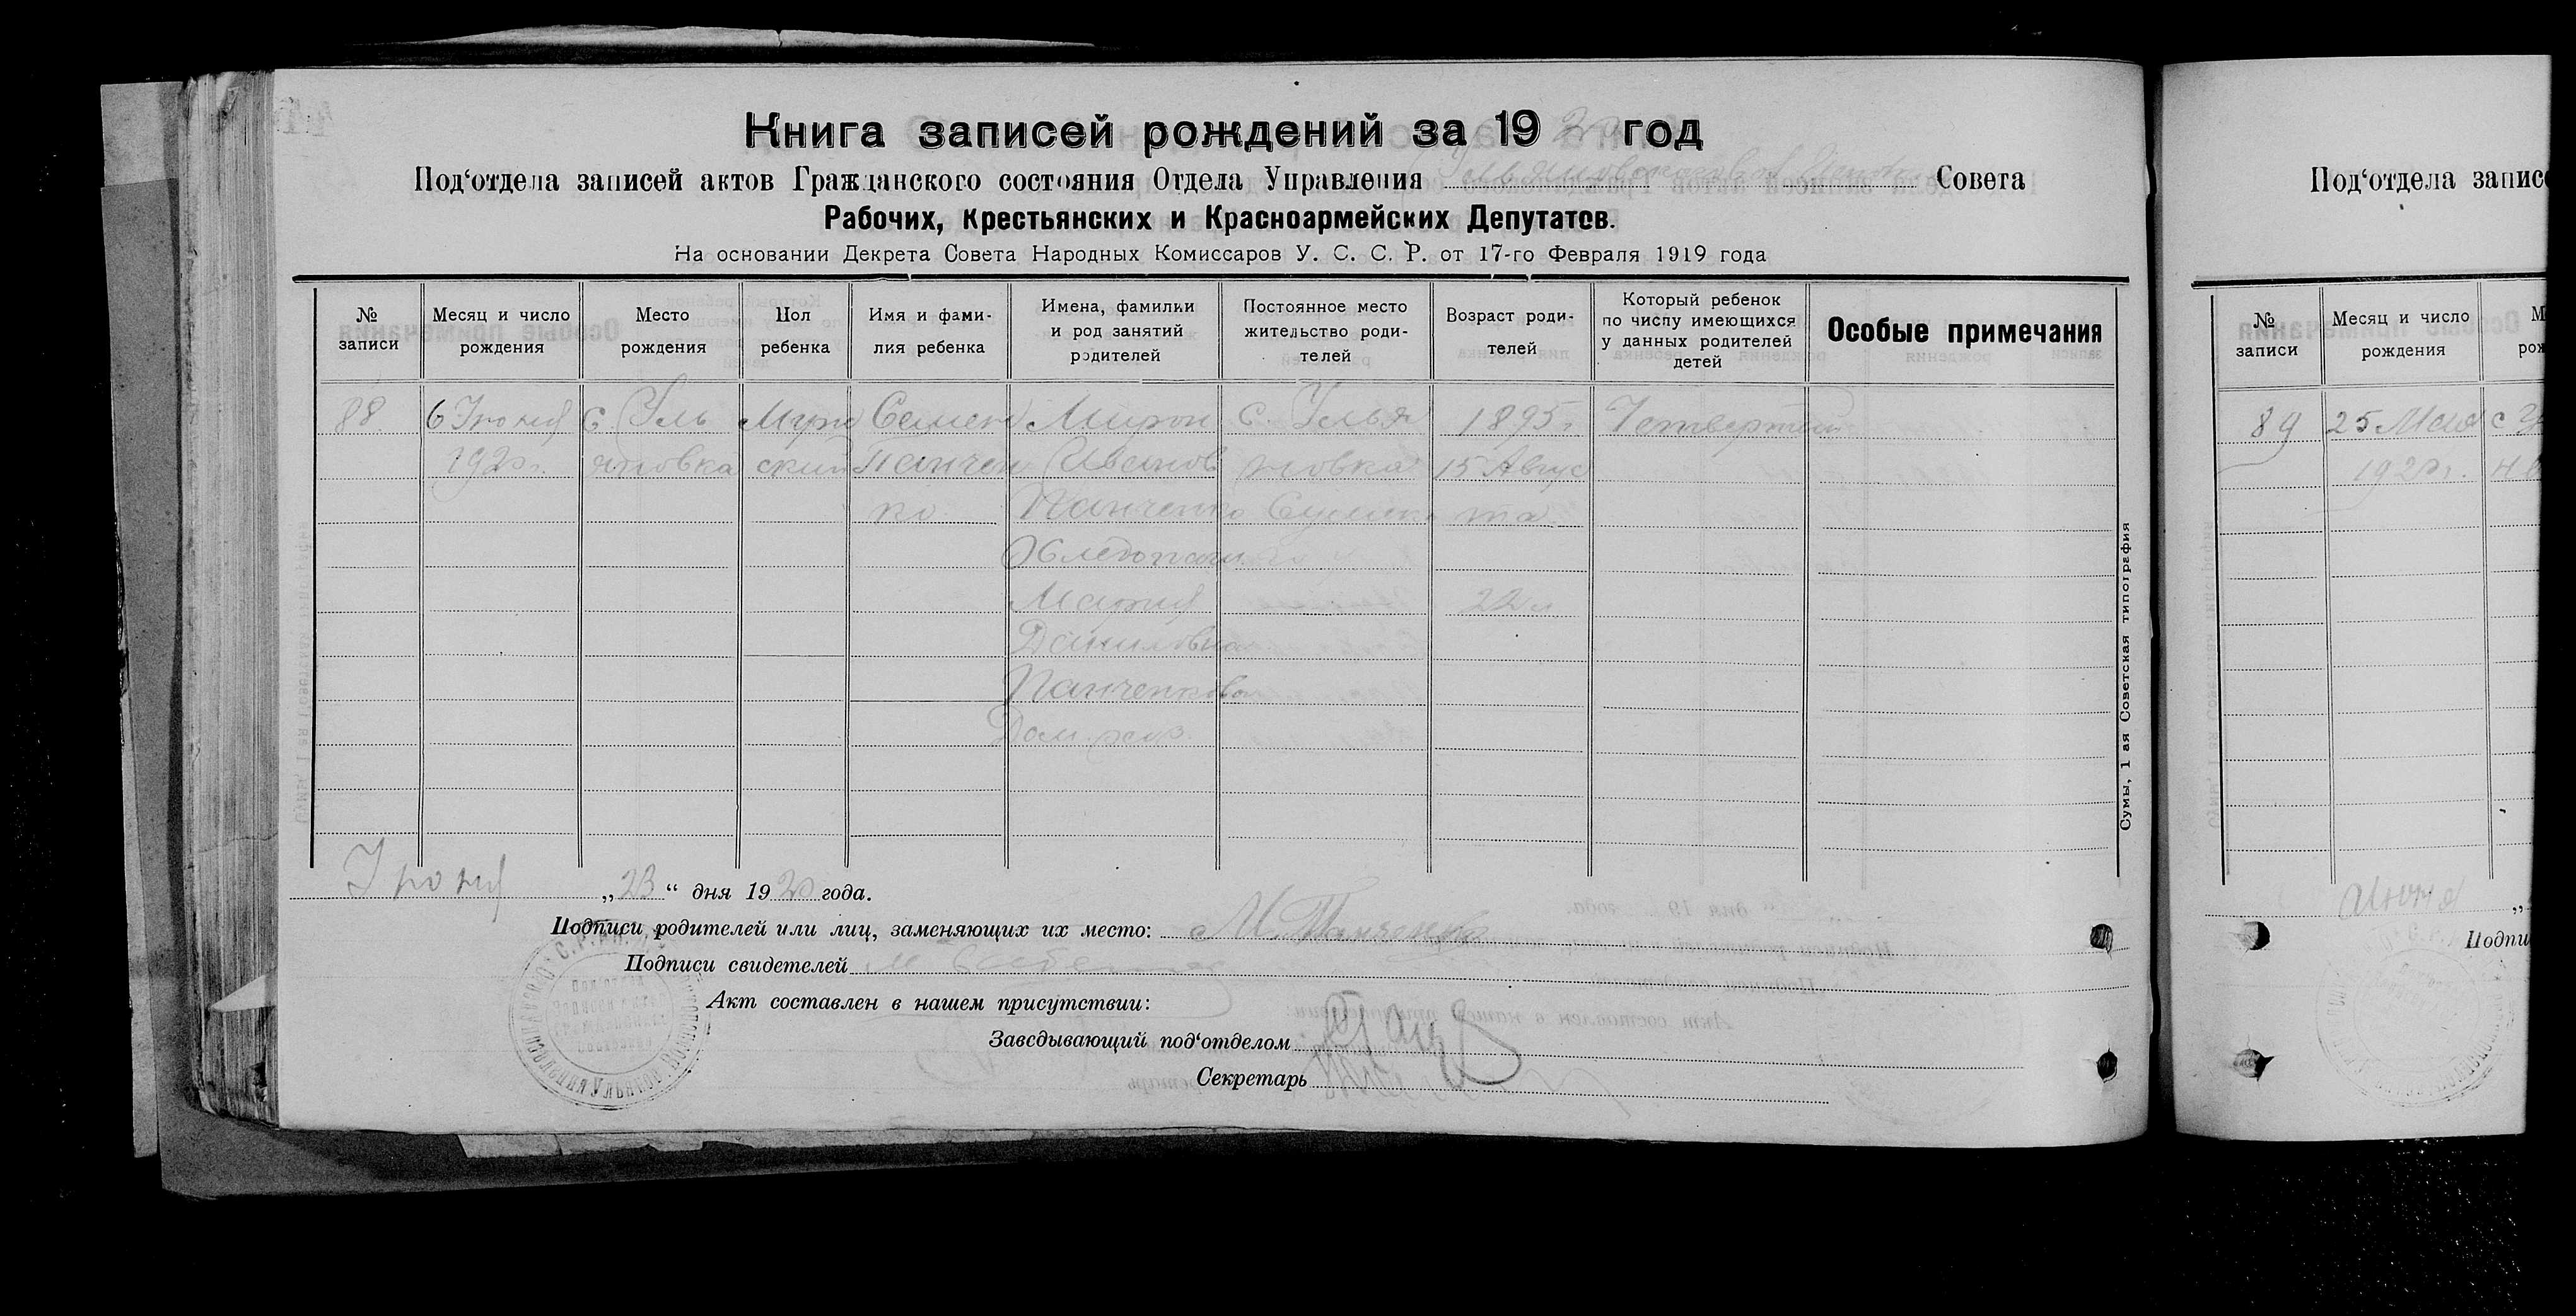 Книга записей рождений за 1920 год
Под‘отдела записей актов Гражданского состояния Отдела Управления Совета
Рабочих, Крестьянских и Красноармейских Депутатов.
На основании Декрета Совета Народных Комиссаров У. С. С. Р. от 17-го Февраля 1919 года
№ записи
Месяц и число рождения
Место рождения
Пол ребенка
Имя и фами-
лия ребенка
Имена, фамилии
и род занятий
родителей
Постоянное место
жительство роди-
телей
Возраст роди-
телей
Который ребенок
по числу имеющихся
у данных родителей
детей
Особые примечания
88.
6 Июня
1920 г.
с. Уль
яновка
Муж
ский
Семен
Панчен
ко
Мирон
Иванов
Панченко
Хлебопаш
Мария
Даниловна
Панченкова
Дом. раб.
с. Улья
новка
1895 г.
15 Авгус
та
22 л
Четвертый
Сумы, 1 ая Советская типография
Июня „23“ дня 1920 года.
Подписи родителей или лиц, заменяющих их место: М. Панченко
Подписи свидетелей
Акт составлен в нашем присутствии:
Заведывающий под‘отделом
Секретарь
Под‘отдела записе
№ записи
Месяц и число рождения
М
рож
89
25 Мая
1920 г.
с
Июня „
Подпи